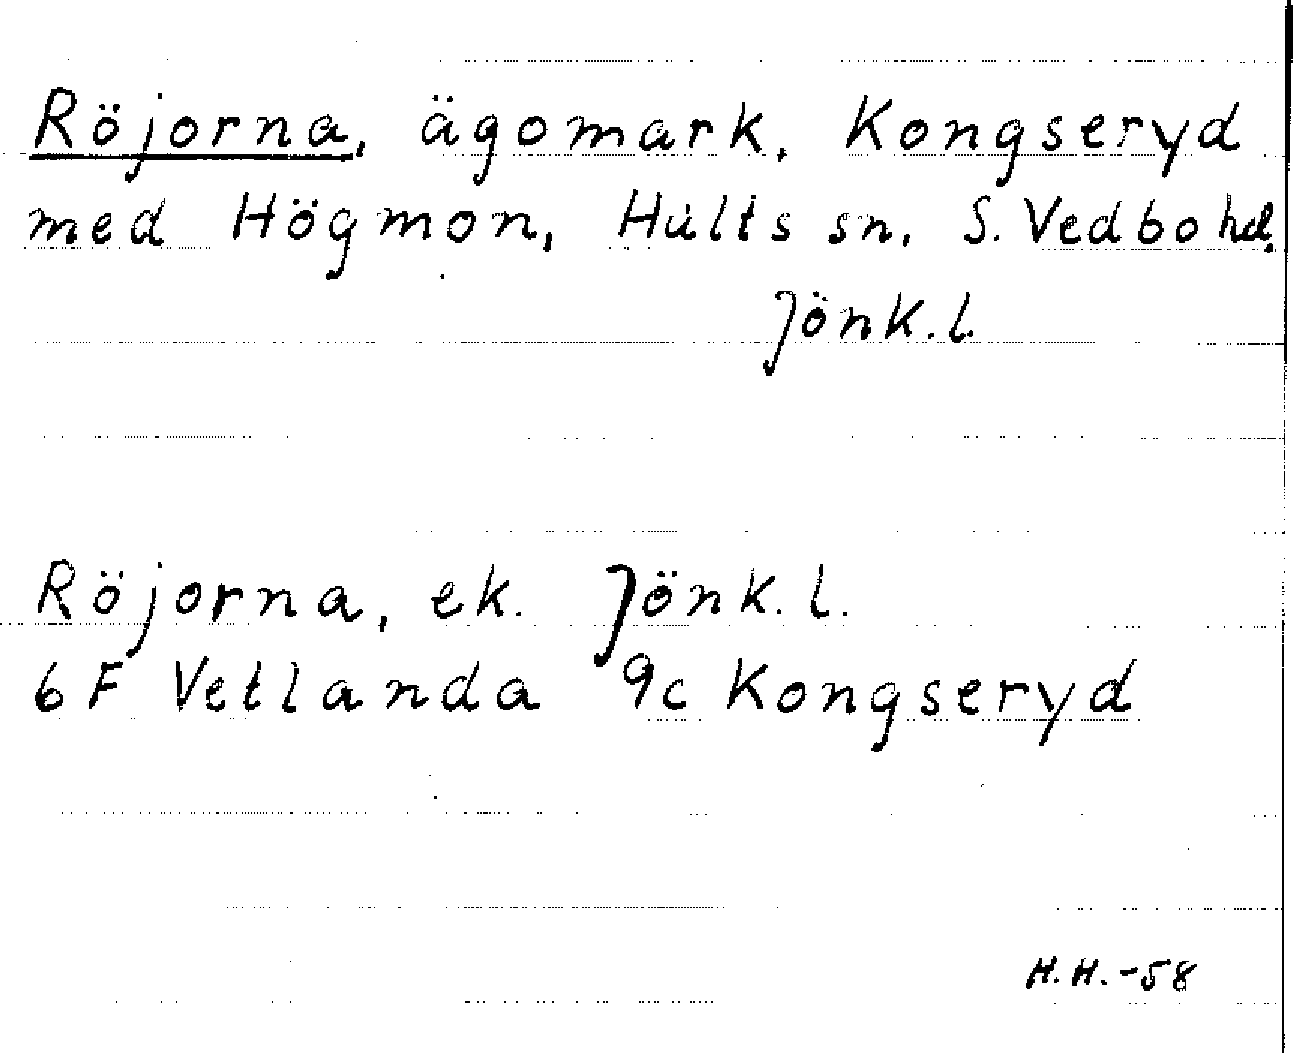 Röjorna, ägomark, Kongseryd
med Högmon, Hults sn, S. Vedbo hd.
Jönk. l.
Röjorna, ek. Jönk. l.
6 F Vetlanda 9c Kongseryd
H. H. -58